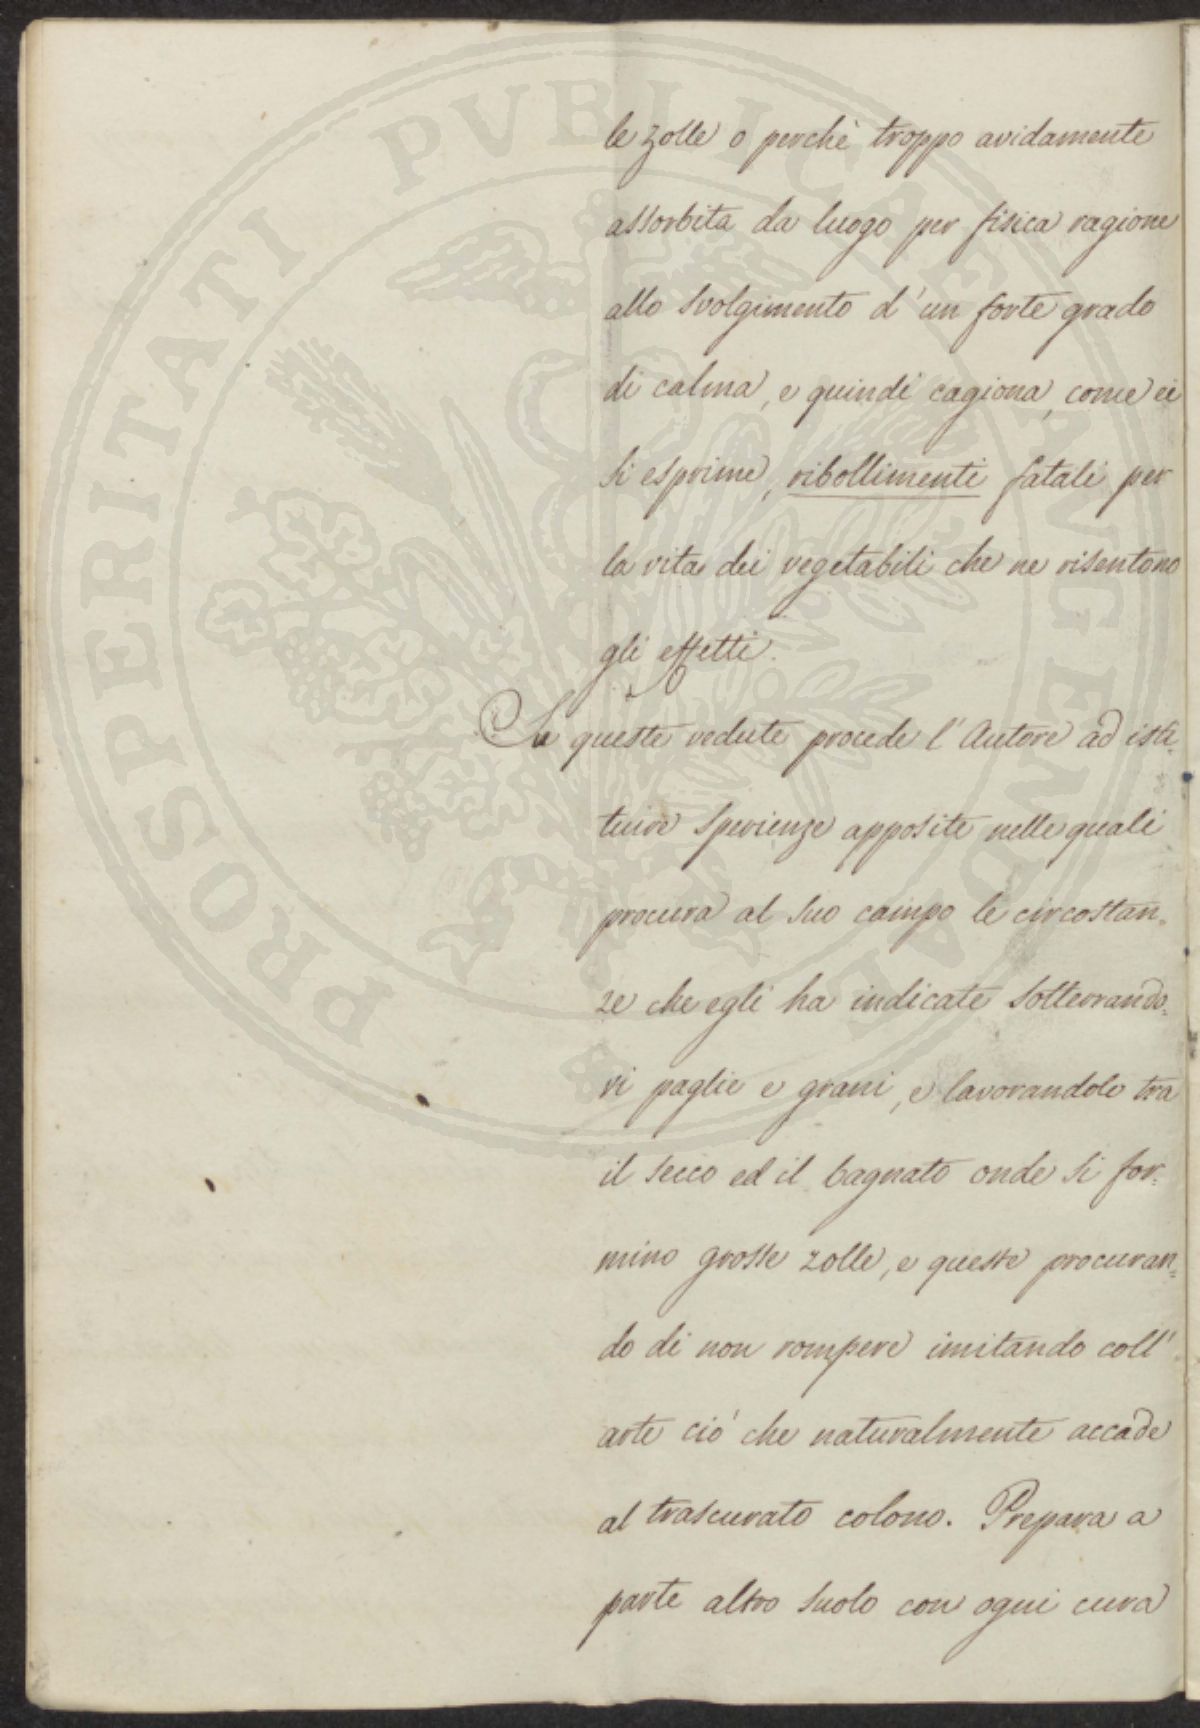 le zolle o perchè troppo avidamente
assorbita da luogo per fisica ragione
allo svolgimento d'un forte grado
di calma, e quindi cagiona, come ei
si esprime, ribollimenti fatali per
la vita dei vegetabili che ne risentono
gli effetti.
Su queste vedute procede l'Autore ad isti-
tuire sperienze apposite nelle quali
procura al suo campo le circostan-
ze che egli ha indicate sotterrando-
vi paglie e grani, e lavorandolo tra
il secco ed il bagnato onde si for-
mino grosse zolle, e queste procuran-
do di non rompere imitando coll'
arte ciò che naturalmente accade
al trascurato colono. Prepara a
parte altro suolo con ogni cura
PROSPERITATI PVBLICAE AVGENDAE